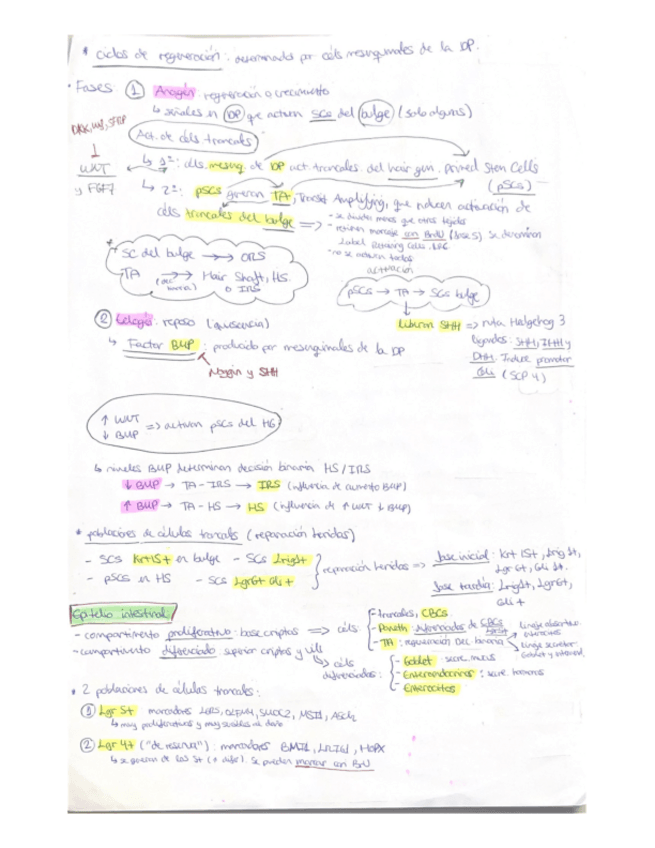 * ciclos de regeneración: determinados por céls mesenquimales de la DP.
· Fases ① Anagén: regeneración o crecimiento
↳ señales en DP que activan SCs del bulge (solo algunas)
DKK, WIF, SFRP
Act. de céls troncales
WNT y FGF7
↳ 1º: céls. mesenq. de DP act. troncales del hair germ. primed Stem Cells (pSCs)
↳ 2º: pSCs generan TA, Transit Amplifying, que inducen activación de
céls troncales del bulge =>
- se dividen menos que otros tejidos
- retienen marcaje con BrdU (base S) se denominan
Label Retaining Cells. LRC
· no se activan todas
* SC del bulge →→→ ORS
TA →→ Hair Shaft, HS.
(dec. binaria) o IRS
activación
pSCs → TA → SCs bulge
↓
Liberan SHH => ruta Hedgehog 3
ligandos: SHH, IHH y
DHH. Induce promotor
Gli (SCP 4)
② telogén: reposo (quiescencia)
↳ Factor BMP: producido por mesenquimales de la DP
Nogin y SHH
↑ WNT
↓ BMP => activan pSCs del HG
↳ niveles BMP determinan decisión binaria HS/IRS
↓ BMP → TA-IRS → IRS (influencia de aumento BMP)
↑ BMP → TA-HS → HS (influencia de ↑ WNT ↓ BMP)
* poblaciones de células troncales (reparación heridas)
- SCs Krt15+ en bulge - SCs Lrig1+
- pSCs en HS - SCs Lgr6+ Gli+
reparación heridas =>
fase inicial: Krt 15+, Lrig 1+,
Lgr 6+, Gli 1+.
fase tardía: Lrig1+, Lgr6+,
Gli+
Epitelio intestinal
- compartimento proliferativo: base criptas => céls:
- compartimento diferenciado: superior criptas y villi
- troncales, CBCs
- Paneth: intercaladas de CBCs
Lgr5+
- TA: regeneración. Dec. binaria
linaje absortivo:
enterocitos
linaje secretor:
Goblet y enteroend.
↳ céls
diferenciadas:
- Goblet: secre. mucus
- Enteroendocrinas: secre. hormonas
- Enterocitos
* 2 poblaciones de células troncales:
① Lgr 5+ marcadores LGR5, OLFM4, SMOC2, MSI1, ASCL2
↳ muy proliferativas y muy sensibles al daño
② Lgr 4+ ("de reserva"): marcadores BMI1, LRIG1, HOPX
↳ se generan de las 5+ Se pueden marcar con BrdU